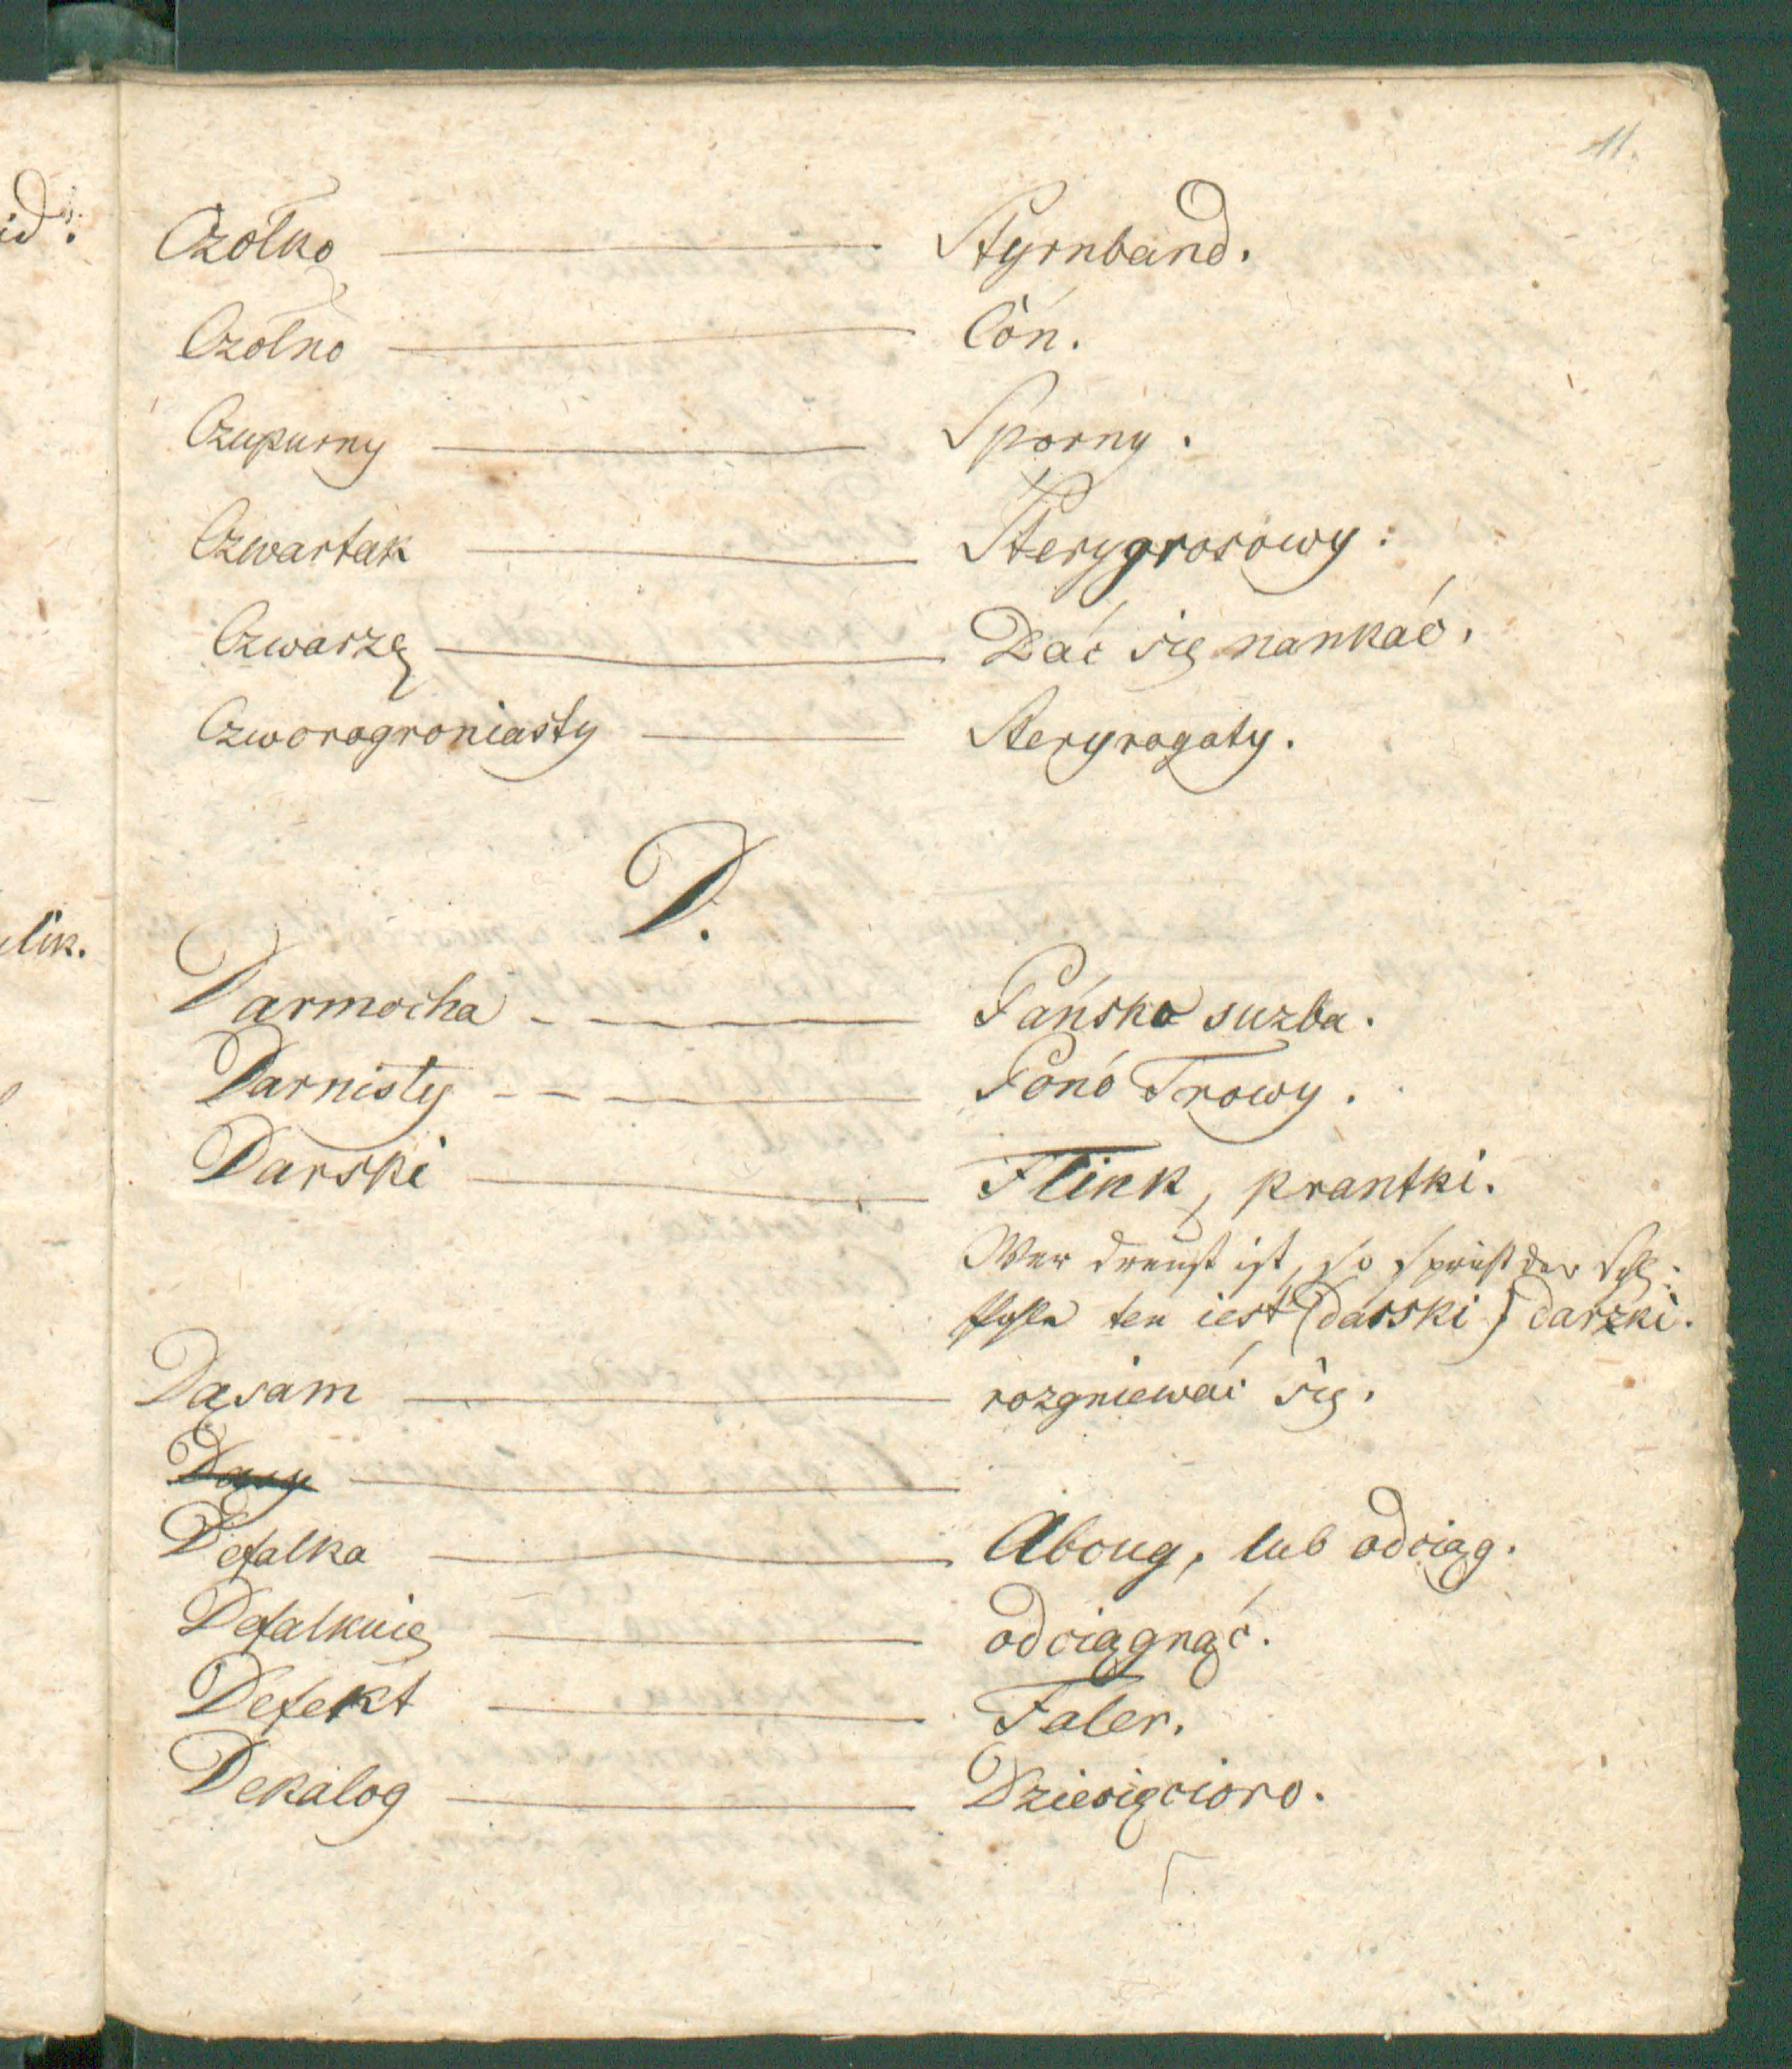 11.
Czółko — Styrnband.
Czółno — Cón.
Czupurny — Sporny.
Czwartak — Sterygrosowy:
Czwarzę — Dać się nankać.
Czworogroniasty — Steryrogaty.
D.
Darmocha — Pańsko suzba.
Darnisty — Ponó Trowy.
Darski — Flink, prantki.
Wer dreust ist, so spricht der Schl:
ten iest (darski) darzki.
Dąsam — rozgniewać się.
Defalka — Abcug, lub odciąg.
Defalkuię — odciągnąć.
Defekt — Faler.
Dekalog — Dziesięcioro.